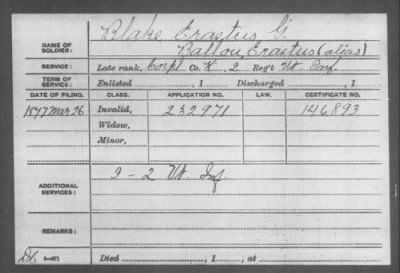 Blake Erastus G.
NAME OF SOLDIER: Ballou, Erastus (alias)
SERVICE: Late rank, Corpl Co. K, 2 Reg't Vt. Inf.
TERM OF SERVICE: Enlisted , 1 Discharged , 1
DATE OF FILING. CLASS. APPLICATION NO. LAW. CERTIFICATE NO.
1877 Mar 26 Invalid, 232971 146,893
Widow,
Minor,
ADDITIONAL SERVICES: I - 2 Vt. Inf
REMARKS:
Died , 1 , at